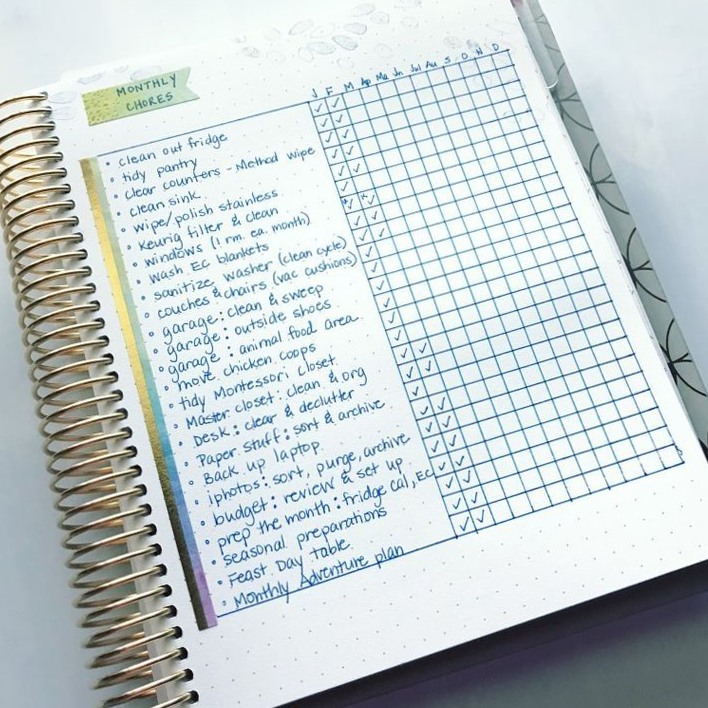 MONTHLY
CHORES
J F M Ap Ma Jn Jul Au S O N D
• clean out fridge
• tidy pantry
• clear counters - Method wipe
• clean sink
• wipe/polish stainless
• Keurig filter & clean
• windows (1 rm. ea. month)
• wash EC blankets
• sanitize washer (clean cycle)
• couches & chairs (vac cushions)
• garage: clean & sweep
• garage: outside shoes
• garage: animal food area
• move chicken coops
• tidy Montessori closet
• Master closet: clean & org
• Desk: clear & declutter
• Paper stuff: sort & archive
• Back up laptop
• iphotos: sort, purge, archive
• budget: review & set up
• prep the month: fridge cal, EC
• seasonal preparations
• Feast Day table
• Monthly Adventure plan